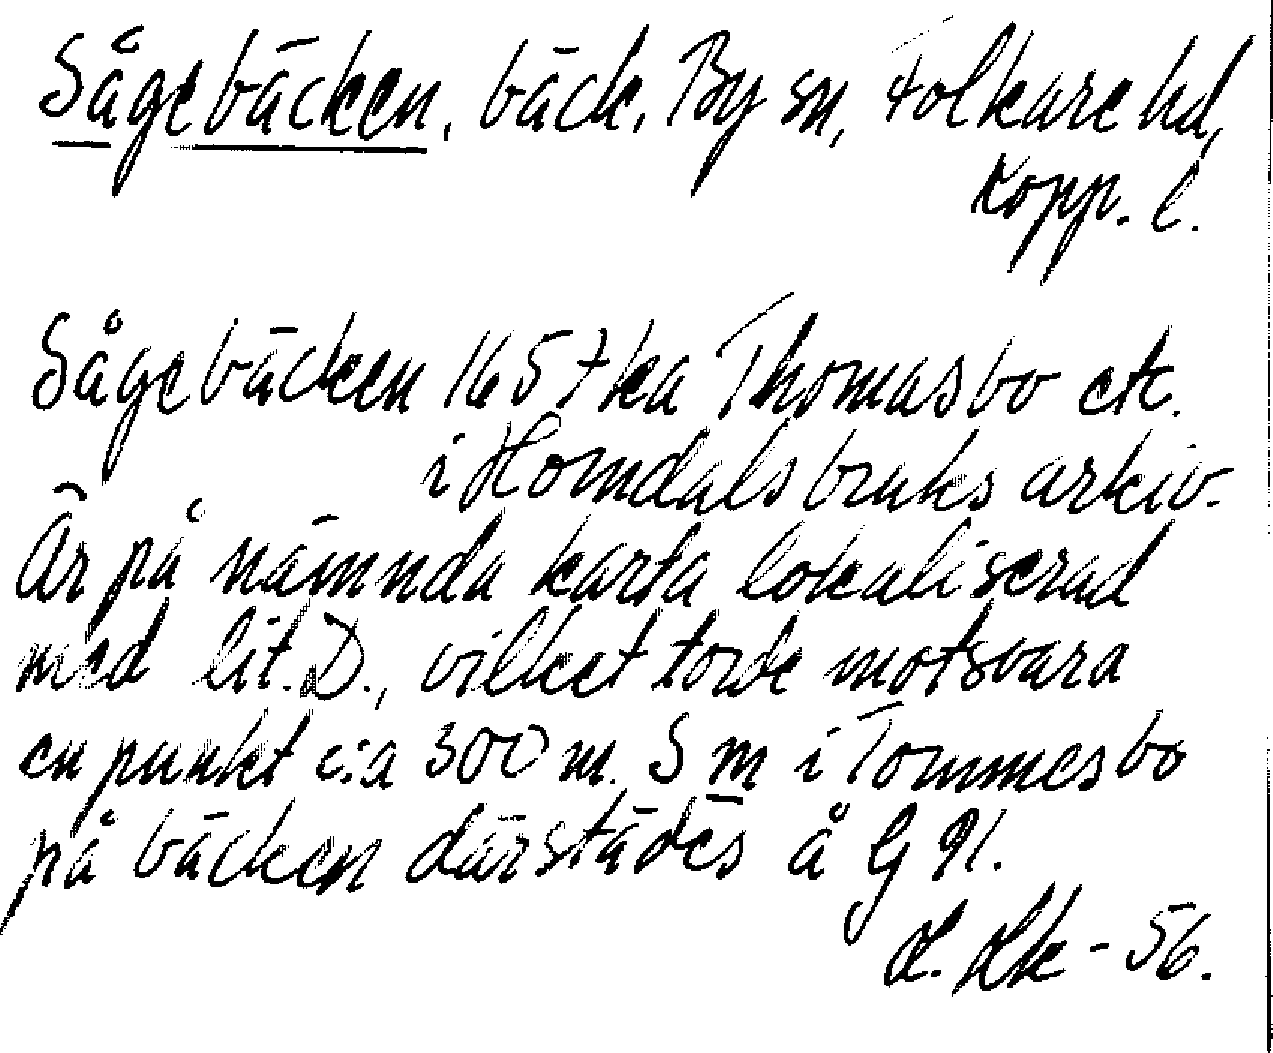 Sågebäcken, bäck, By sn, Folkare hd,
Kopp. l.
Sågebäcken 1657 ka Thomasbo etc.
i Horndals bruks arkiv.
Är på nämnda karta lokaliserad
med lit. D., vilket torde motsvara
en punkt c:a 300 m. S m i Tommesbo
på bäcken därstädes å GK.